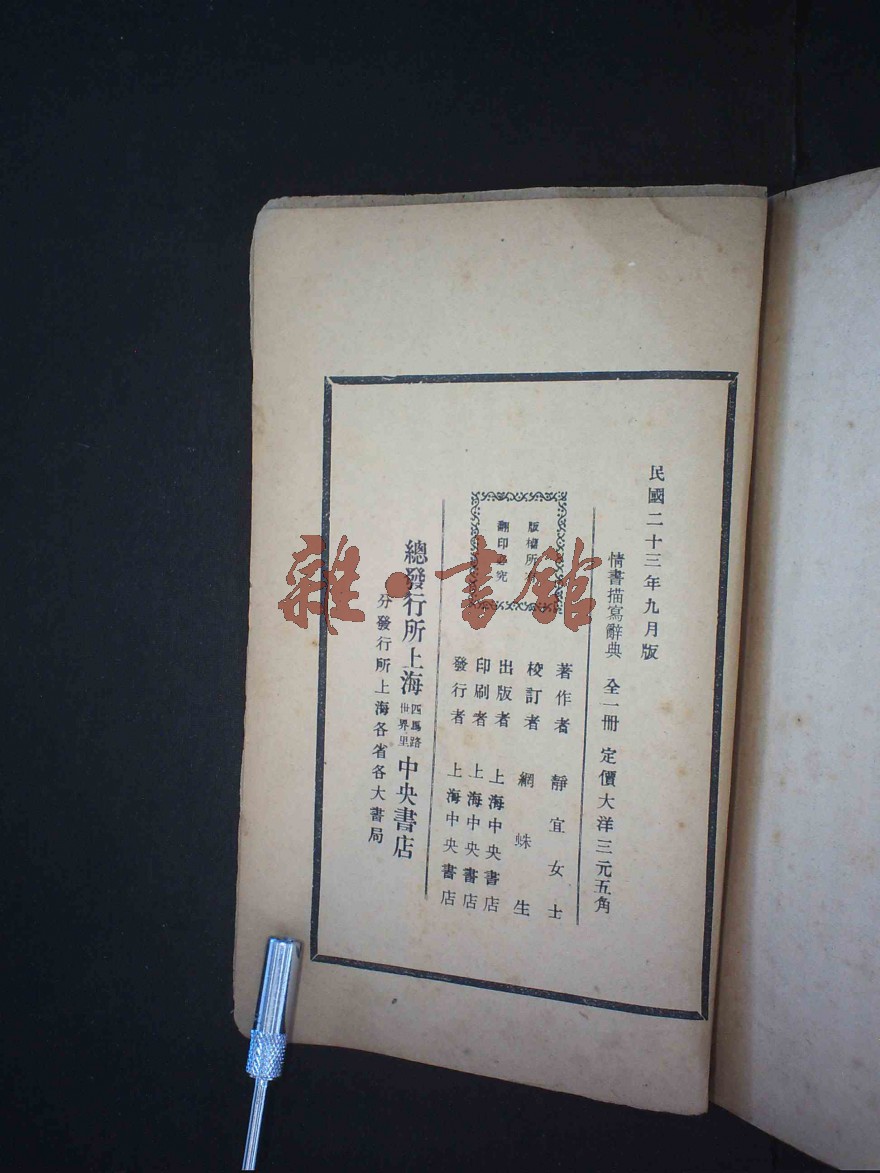 民國二十三年九月版
情書描寫辭典 全一冊 定價大洋三元五角
版權所
翻印 究
著作者 靜宜女士
校訂者 網蛛生
出版者 上海中央書店
印刷者 上海中央書店
發行者 上海中央書店
總發行所上海四馬路世界里中央書店
分發行所上海各省各大書局
雜·書館